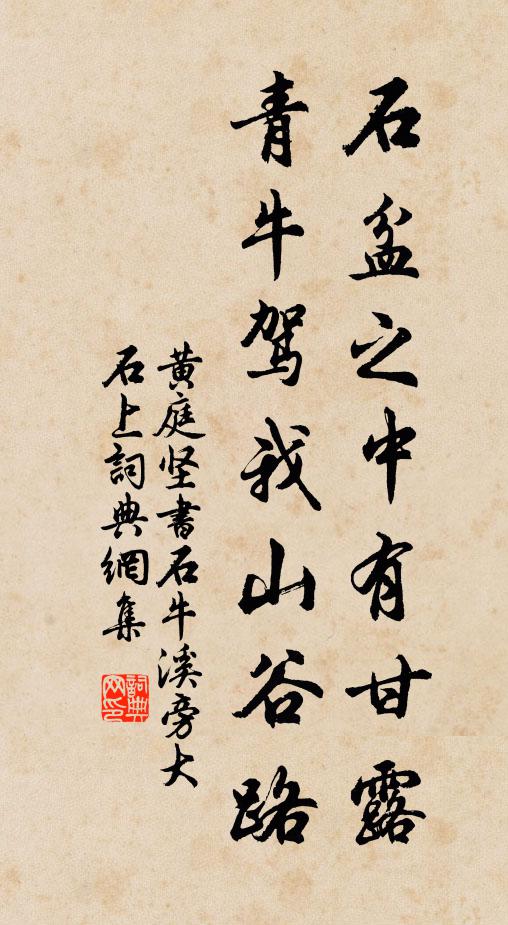 石盆之中有甘露
青牛驾我山谷路
黄庭坚書石牛溪旁大
石上詞典網集
詞典网印